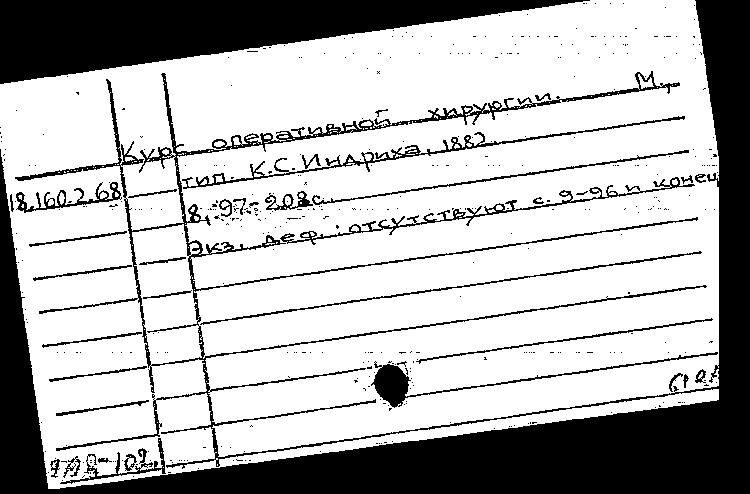 Курс оперативной хирургии. М.,
тип. К.С. Индриха, 1882.
18.160.2.68
8, 97-208 с.
Экз. деф.: отсутствуют с. 9-96 и конец